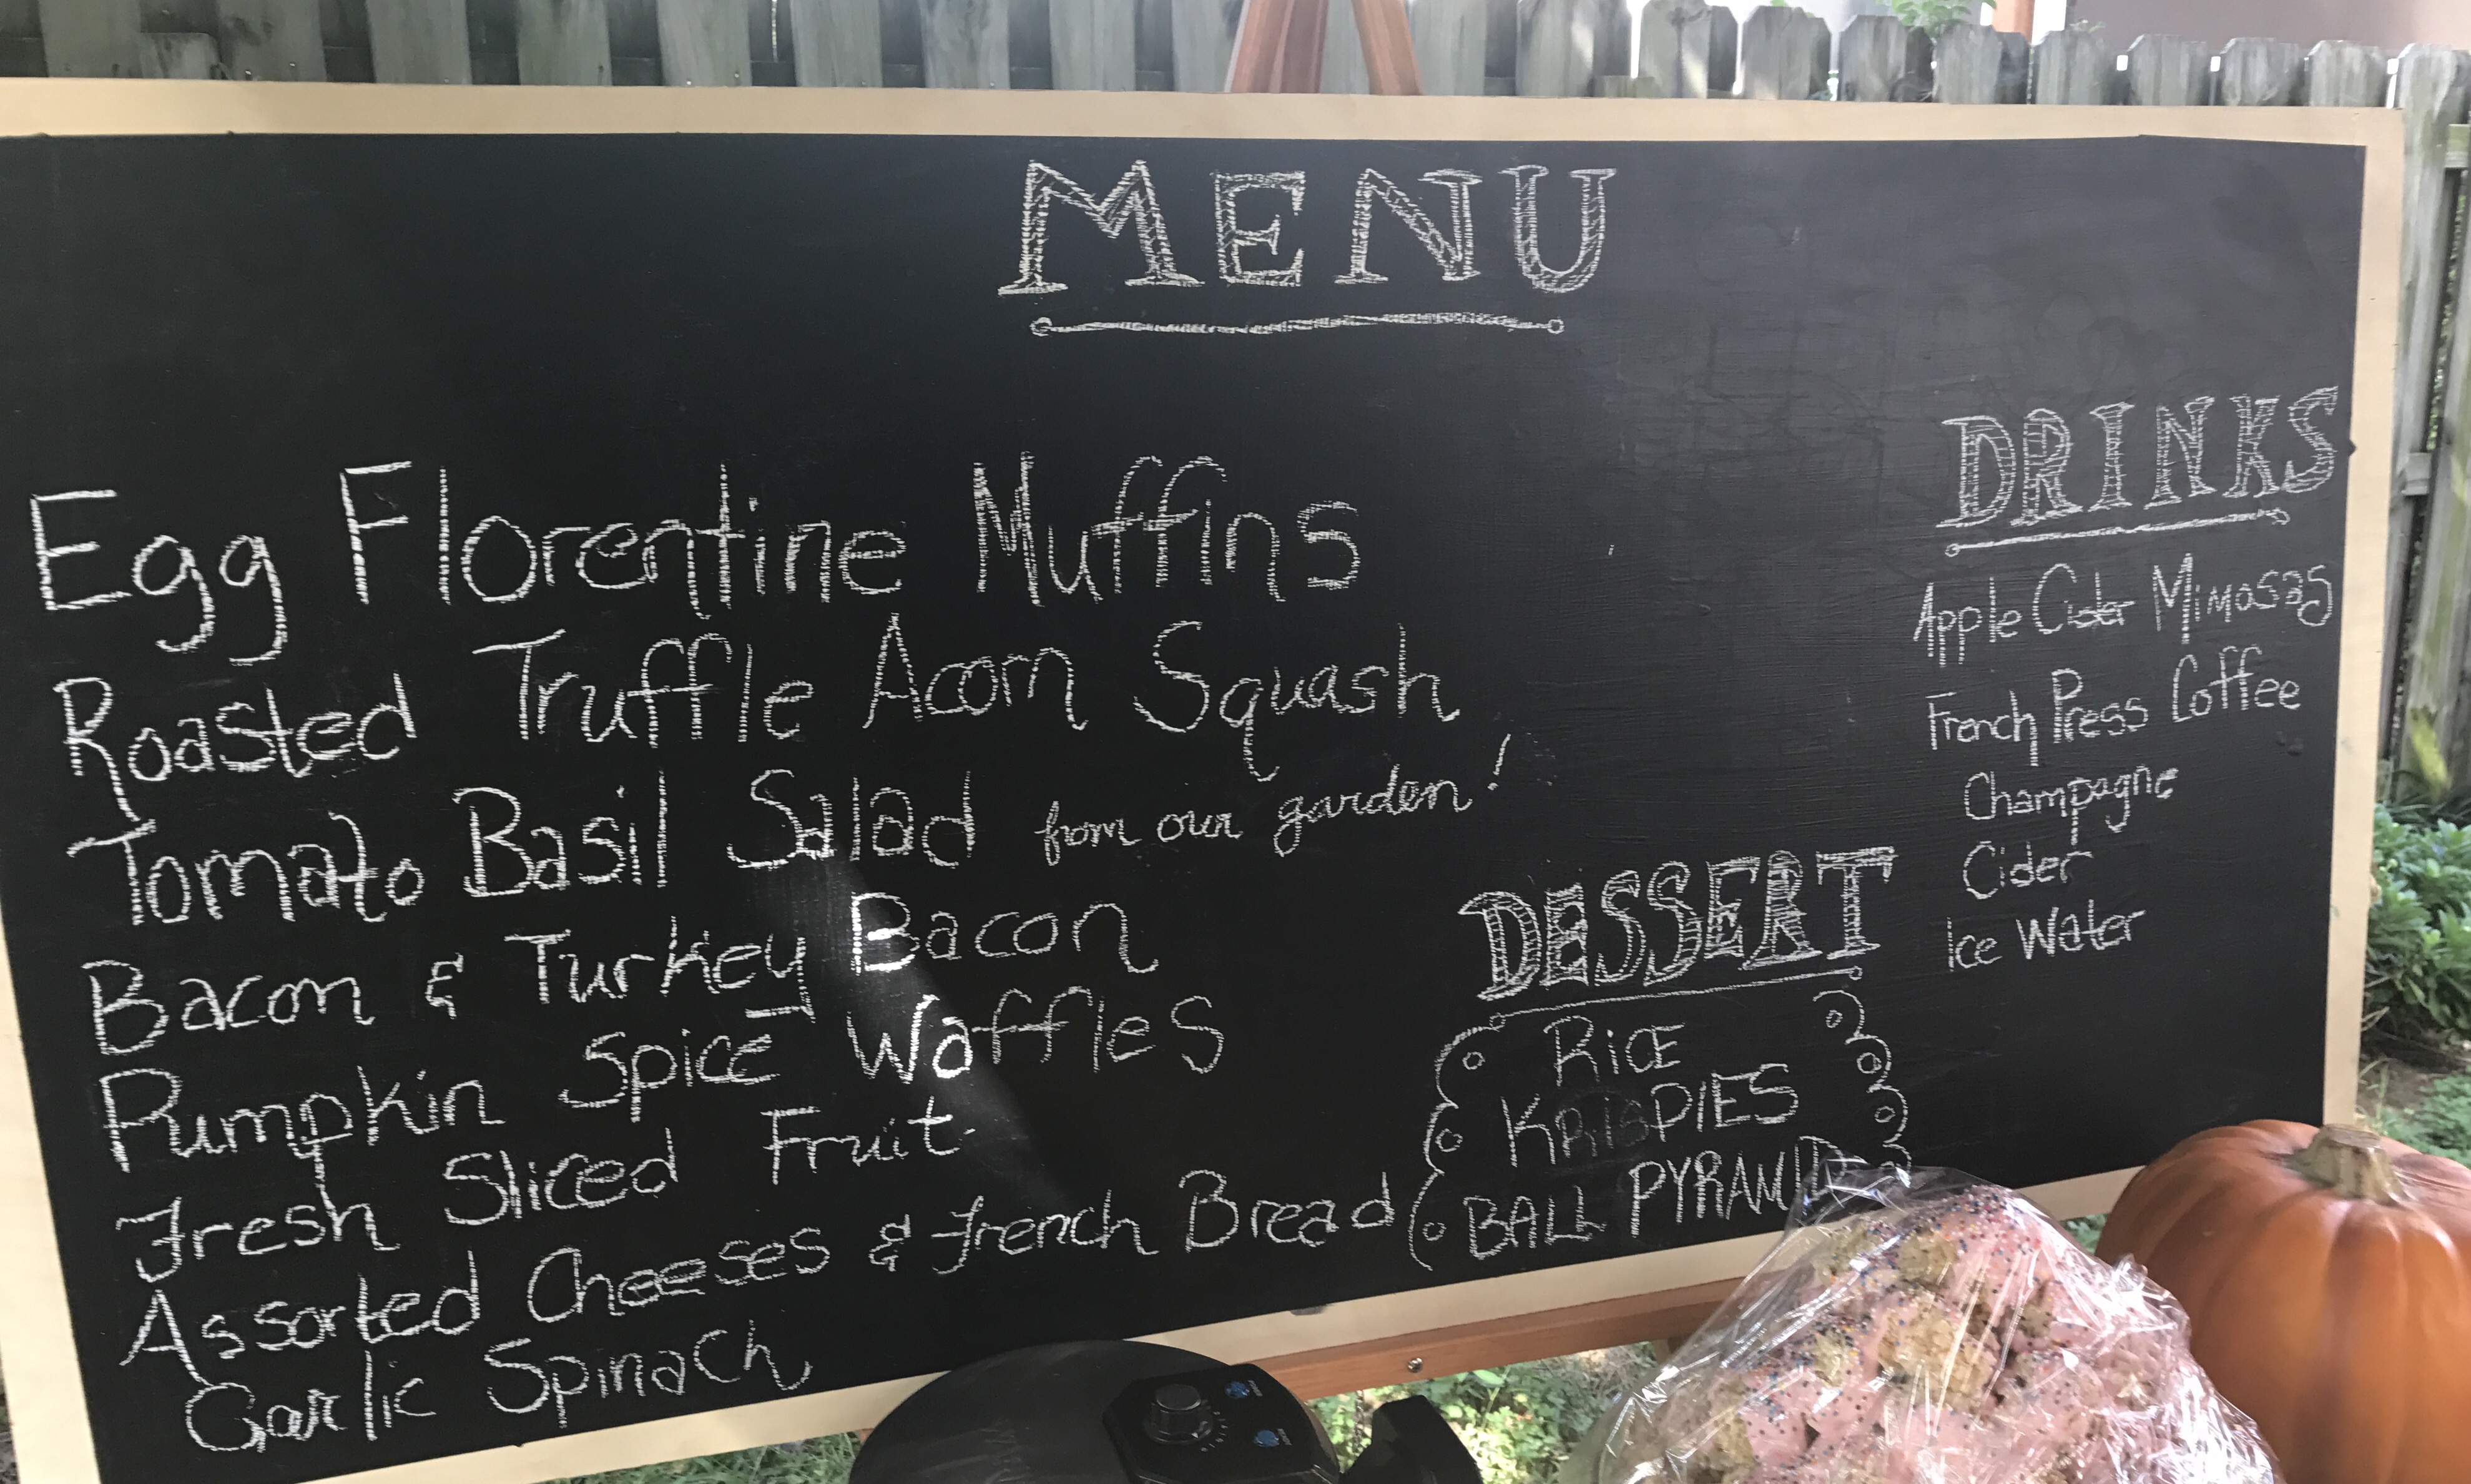 MENU
Egg Florentine Muffins
Roasted Truffle Acorn Squash
Tomato Basil Salad from our garden!
Bacon & Turkey Bacon
Pumpkin Spice Waffles
Fresh Sliced Fruit
Assorted Cheeses & French Bread
Garlic Spinach
DESSERT
RiCE
KRiSPIES
BALL PYRAMID
DRINKS
Apple Cider Mimosas
French Press Coffee
Champagne
Cider
Ice Water